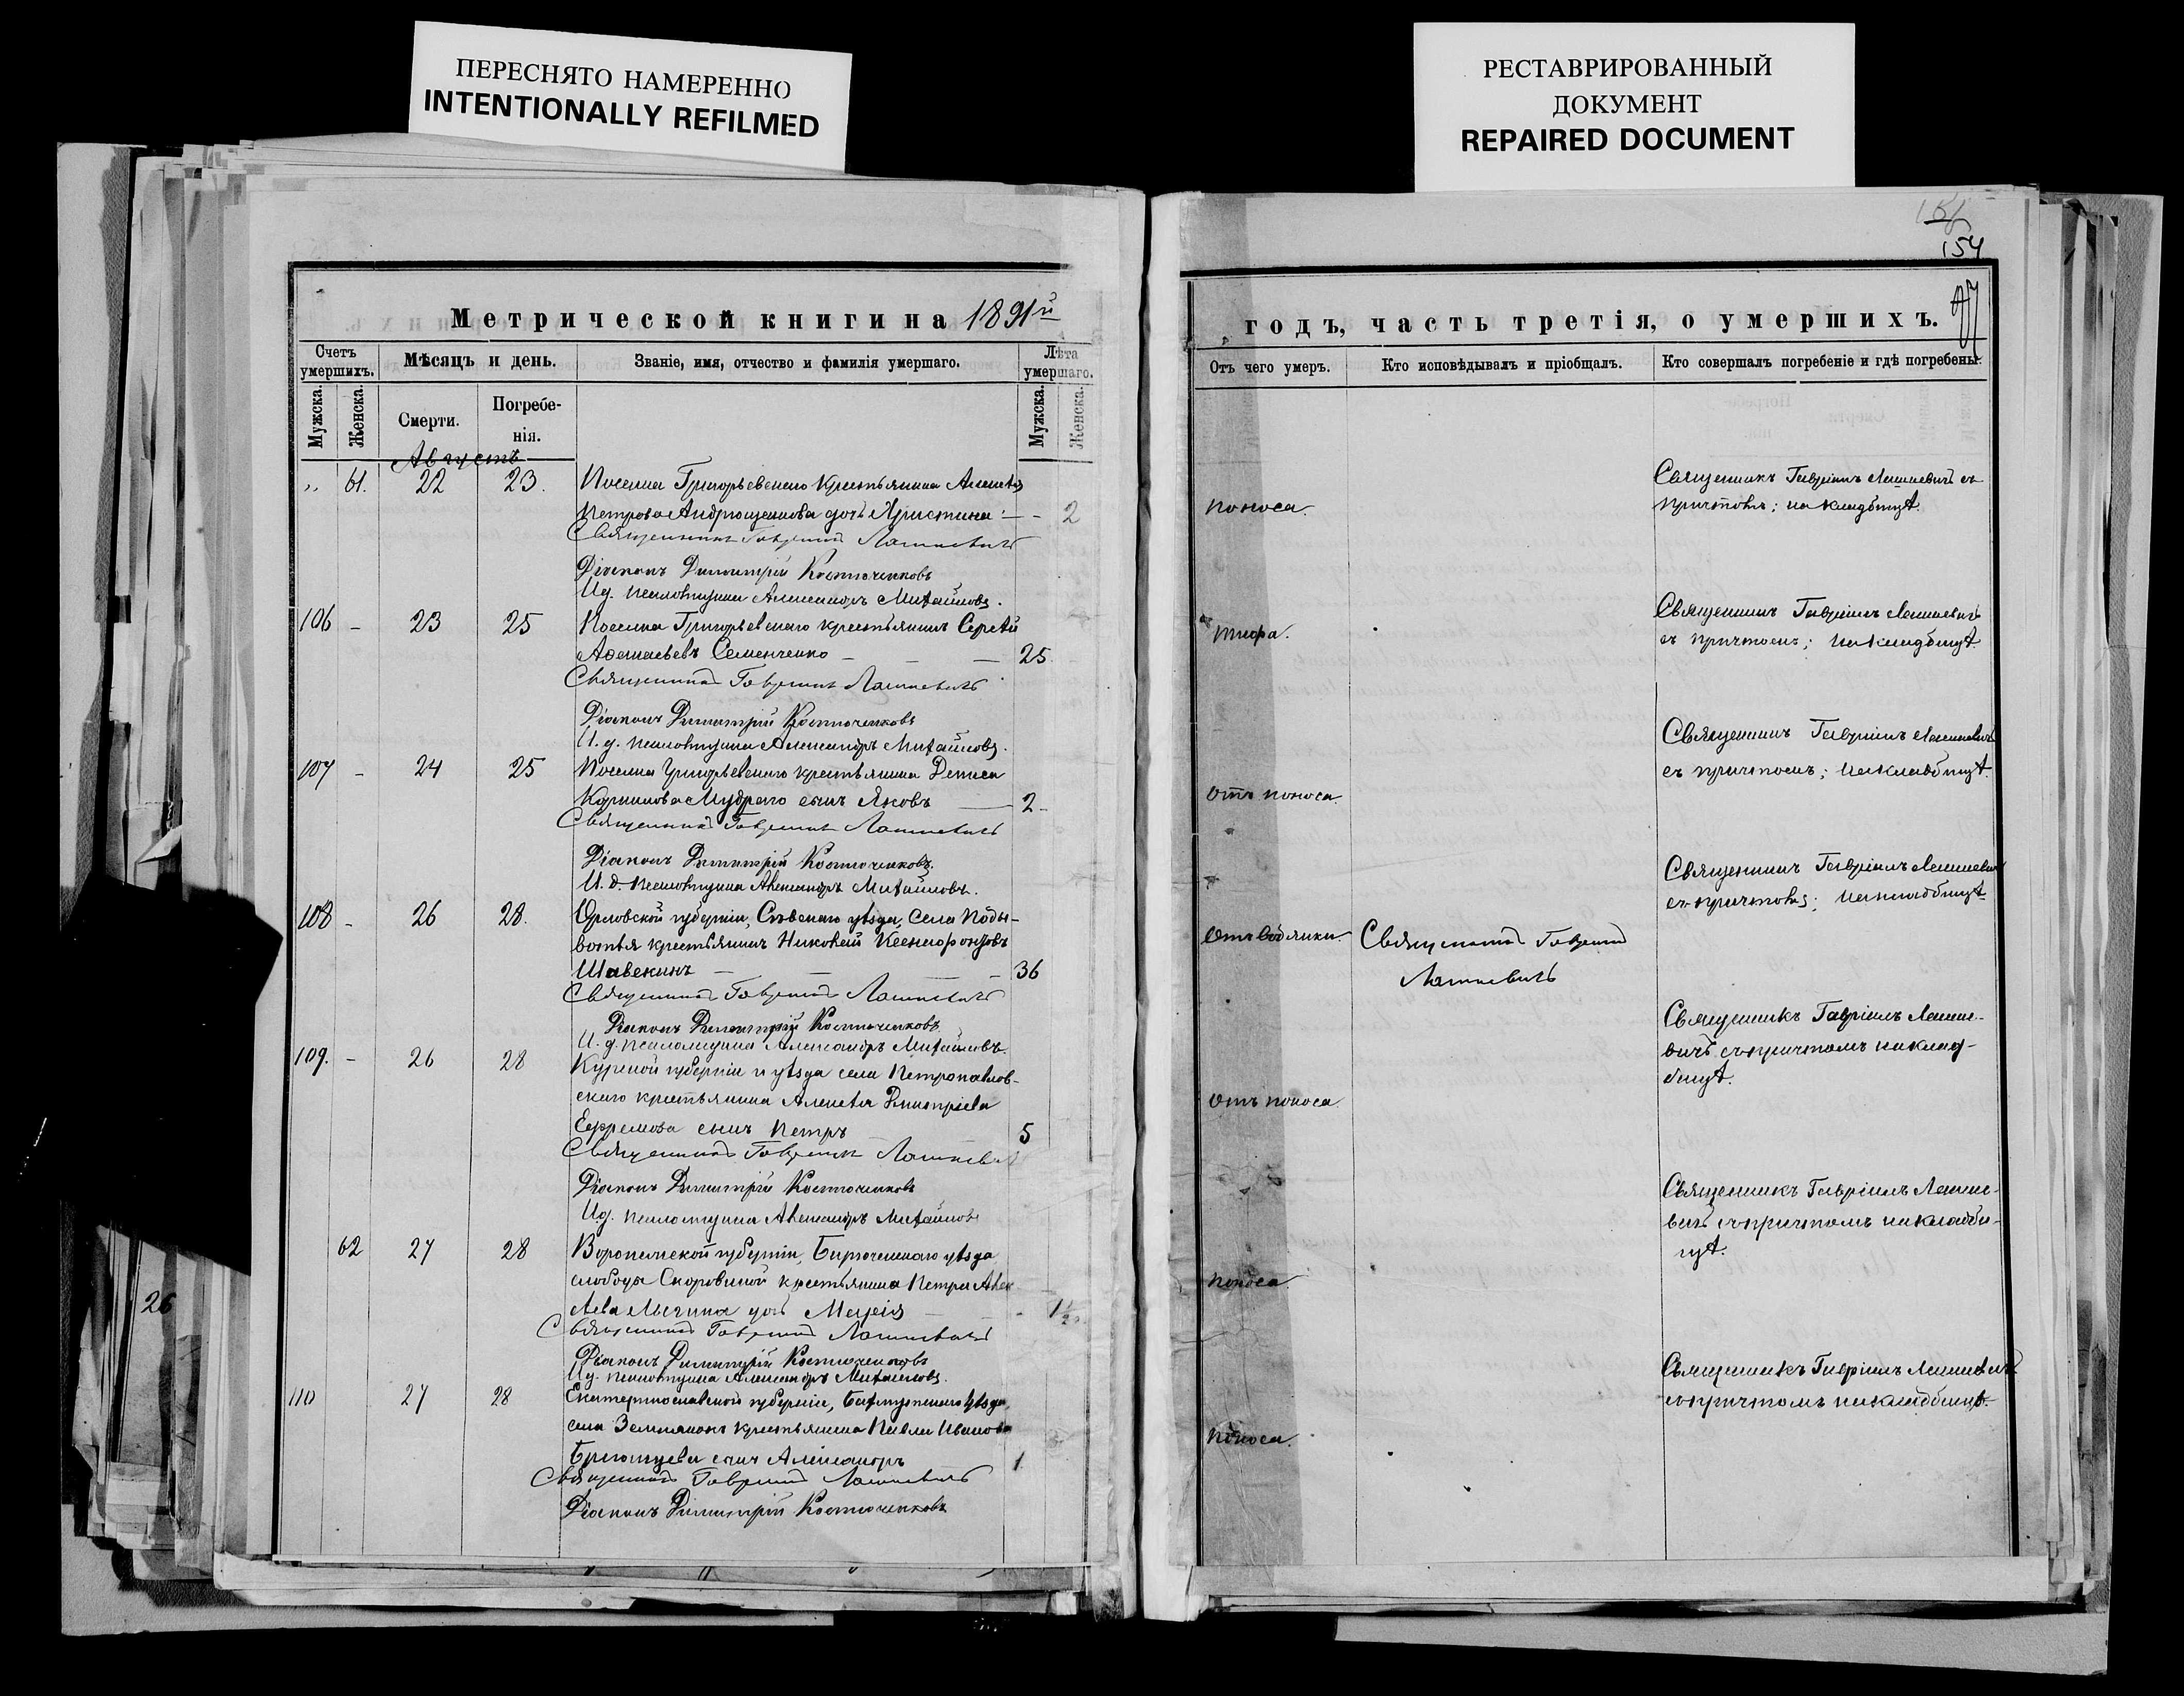 ПЕРЕСНЯТО НАМЕРЕННО
INTENTIONALLY REFILMED
РЕСТАВРИРОВАННЫЙ
ДОКУМЕНТ
REPAIRED DOCUMENT
154
Метрической книги на 1891й
Счетъ умершихъ.
Мѣсяцъ и день.
Званіе, имя, отчество и фамилія умершаго.
Лѣта умершаго.
Мужска.
Женска.
Смерти.
Погребе-
нія.
Мужска.
Женска.
Августъ
61. 22 23. Поселка Григорьевскаго крестьянина Алексѣя
Петрова Андрющенкова дочь Христина - 2
Священникъ Гавріилъ Лашкевичъ
Діаконъ Димитрій Костюченковъ
И.д. псаломщика Александръ Михайловъ.
106 - 23 25 Поселка Григорьевскаго крестьянинъ Сергѣй
Аѳанасьевъ Семенченко - - - 25
Священникъ Гавріилъ Лашкевичъ
Діаконъ Димитрій Костюченковъ
И.д. псаломщика Александръ Михайловъ.
107 - 24 25 Поселка Григорьевскаго крестьянина Дениса
Мудраго сынъ Яковъ - 2 -
Священникъ Гавріилъ Лашкевичъ
Діаконъ Димитрій Костюченковъ.
И.д. псаломщика Александръ Михайловъ.
108 - 26 28. Орловской губерніи, Сѣвскаго уѣзда, села Поды-
вотья крестьянинъ Николай Ксенофонтовъ
Шавекинъ - - - 36
Священникъ Гавріилъ Лашкевичъ
Діаконъ Димитрій Костюченковъ
И.д. псаломщика Александръ Михайловъ.
109. - 26 28 Курской губерніи и уѣзда села Петропавлов-
скаго крестьянина Алексѣя Дмитріева
Ефремова сынъ Петръ 5
Священникъ Гавріилъ Лашкевичъ
Діаконъ Димитрій Костюченковъ
И.д. псаломщика Александръ Михайловъ
62 27 28 Воронежской губерніи, Бирюченскаго уѣзда
слободы крестьянина Петра
дочь Марія - 1 1/2
Священникъ Гавріилъ Лашкевичъ
Діаконъ Димитрій Костюченковъ
И.д. псаломщика Александръ Михайловъ.
110 27 28 Екатеринославской губерніи, Бахмутскаго уѣзда,
села Землянокъ крестьянина Павла Иванова
сынъ Александръ 1
Священникъ Гавріилъ Лашкевичъ
Діаконъ Димитрій Костюченковъ
годъ, часть третія, о умершихъ.
Отъ чего умеръ.
Кто исповѣдывалъ и пріобщалъ.
Кто совершалъ погребеніе и гдѣ погребены.
поноса.
Священникъ Гавріилъ Лашкевичъ съ
причтомъ; на кладбищѣ.
тифа.
Священникъ Гавріилъ Лашкевичъ
съ причтомъ; на кладбищѣ.
отъ поноса.
Священникъ Гавріилъ Лашкевичъ
съ причтомъ; на кладбищѣ.
отъ водянки.
Священникъ Гавріилъ
Лашкевичъ
Священникъ Гавріилъ Лашкевичъ
съ причтомъ; на кладбищѣ
отъ поноса
Священникъ Гавріилъ Лашке-
вичъ съ причтомъ на клад-
бищѣ.
поноса.
Священникъ Гавріилъ Лашке-
вичъ съ причтомъ на кладби-
щѣ.
поноса.
Священникъ Гавріилъ Лашкевичъ
съ причтомъ на кладбищѣ.
26